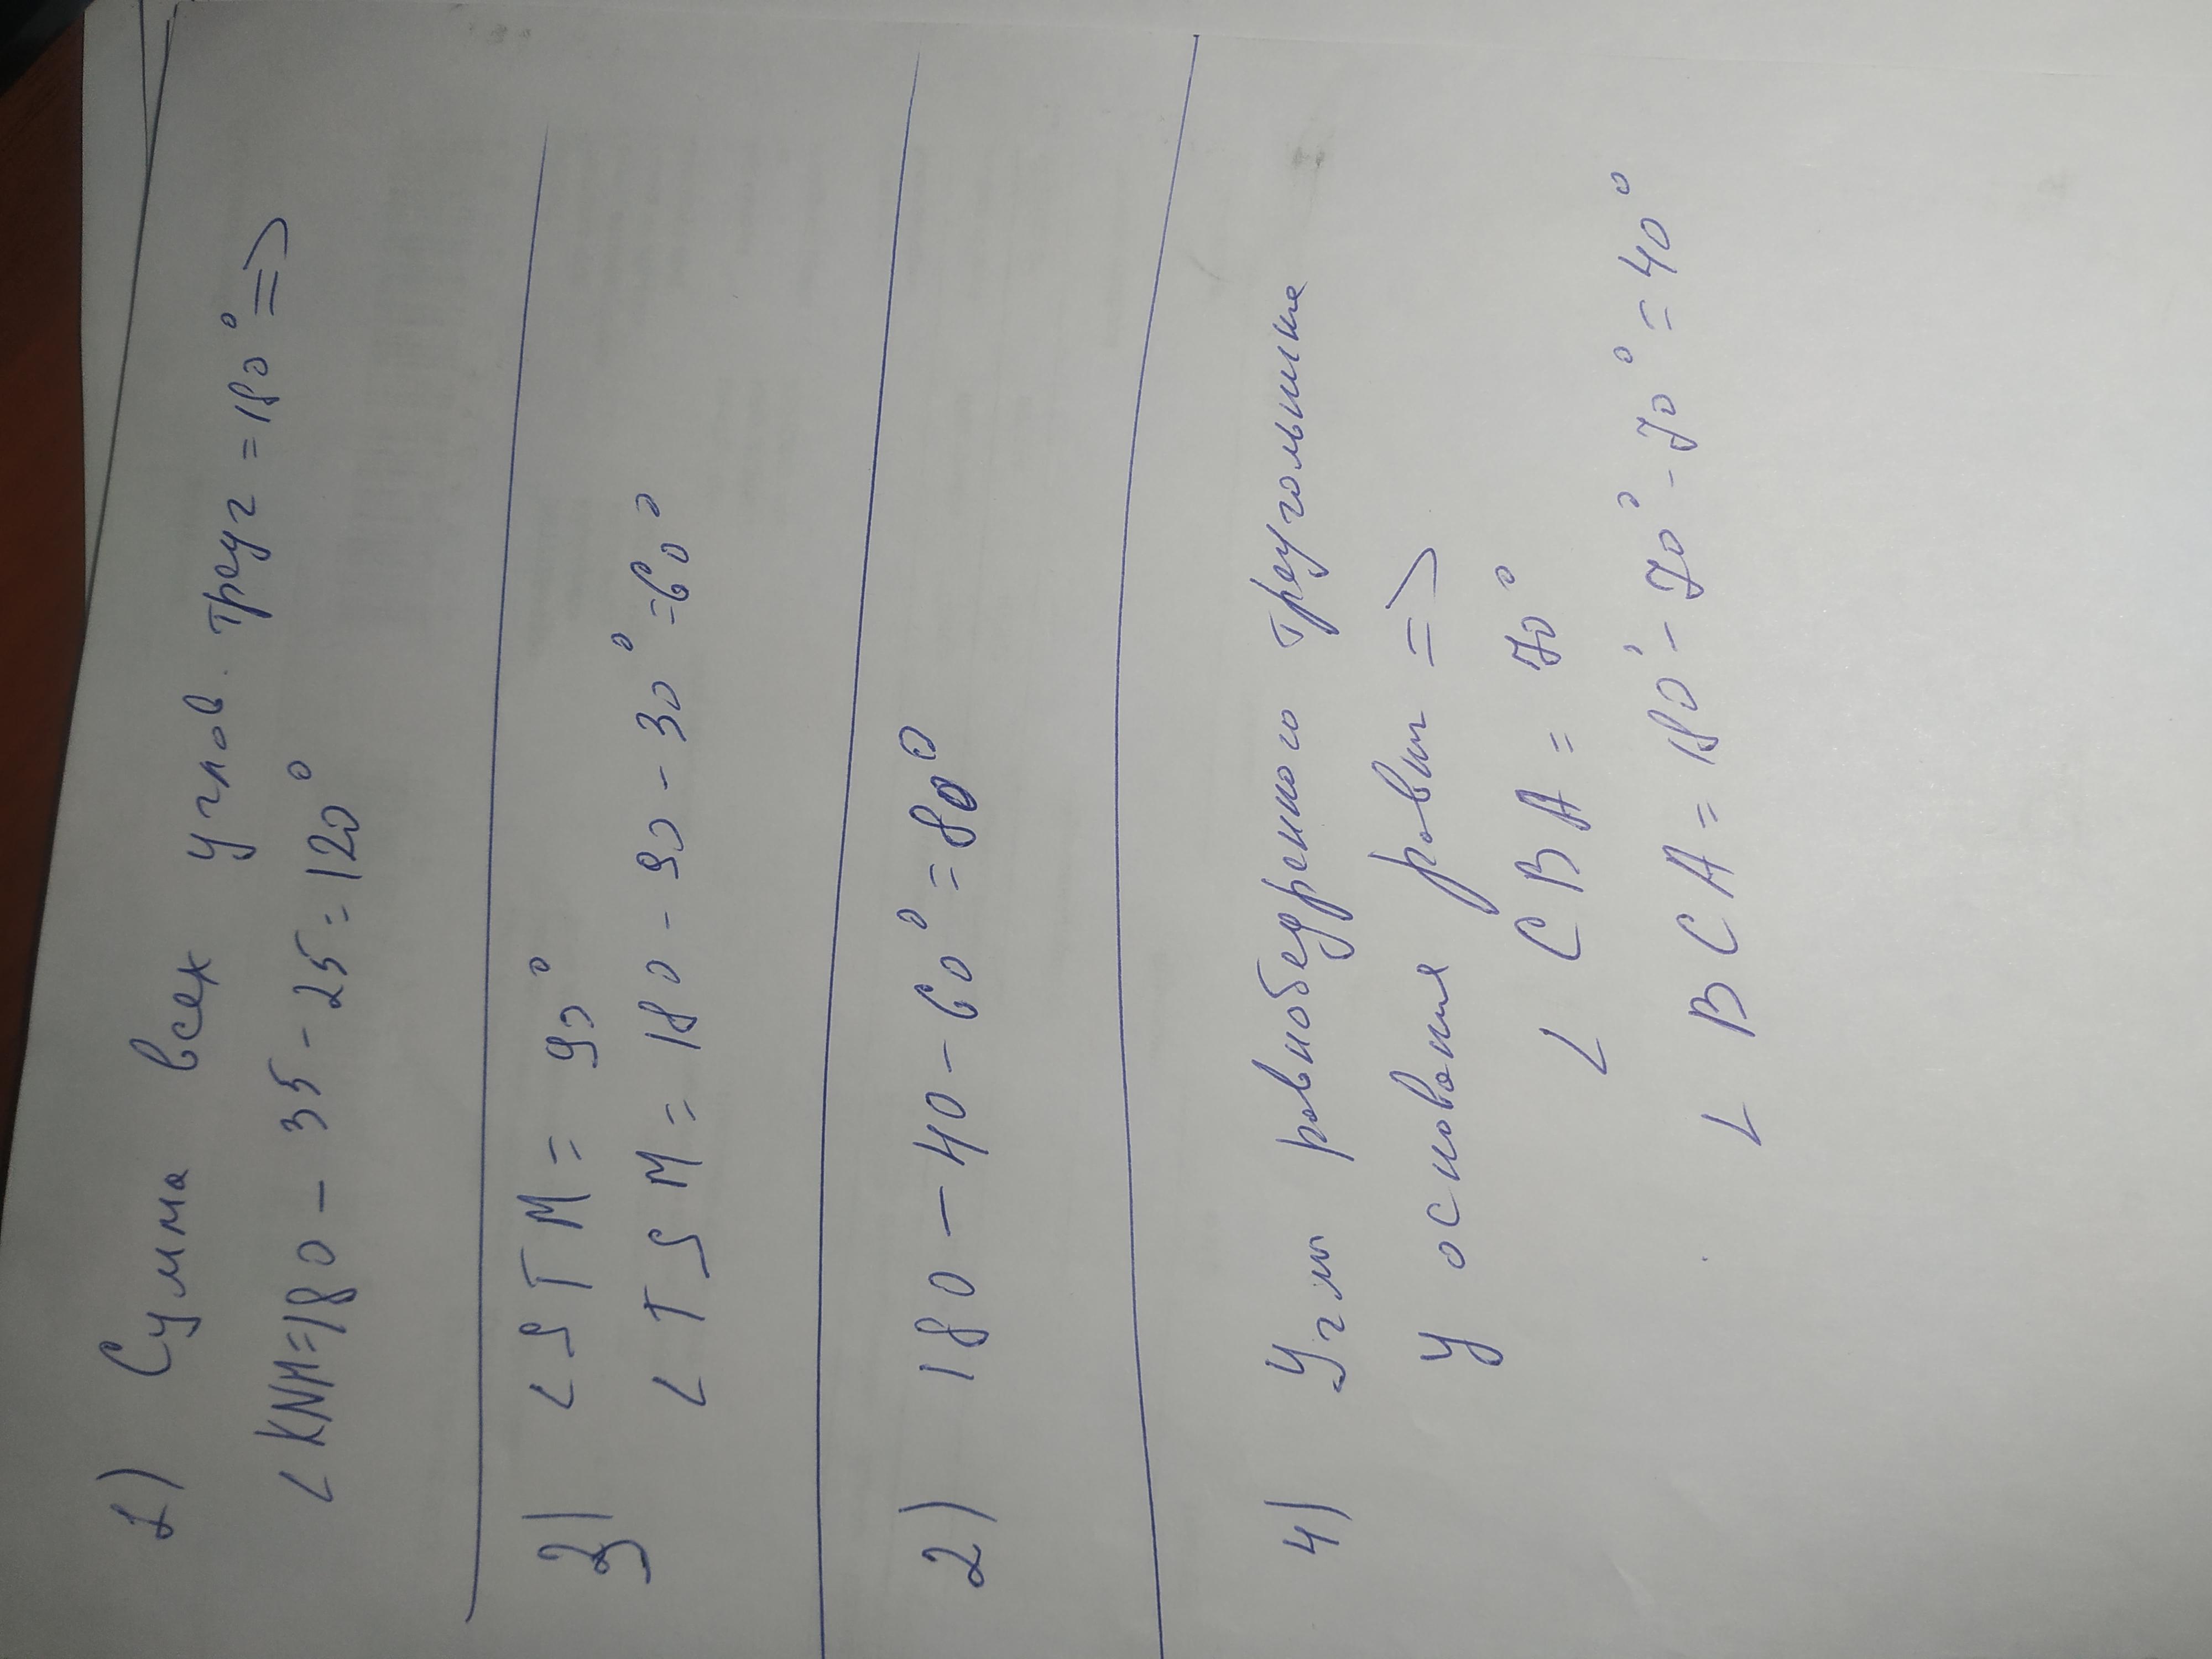 1) Сумма всех углов треуг = 180° =>
∠KNM=180 - 35 - 25 = 120°
3) ∠STM = 90°
∠TSM = 180 - 90 - 30° = 60°
2) 180 - 40 - 60° = 80°
4) Углы равнобедренного треугольника
у основания равны =>
∠CBA = 70°
∠BCA = 180° - 70° - 70° = 40°